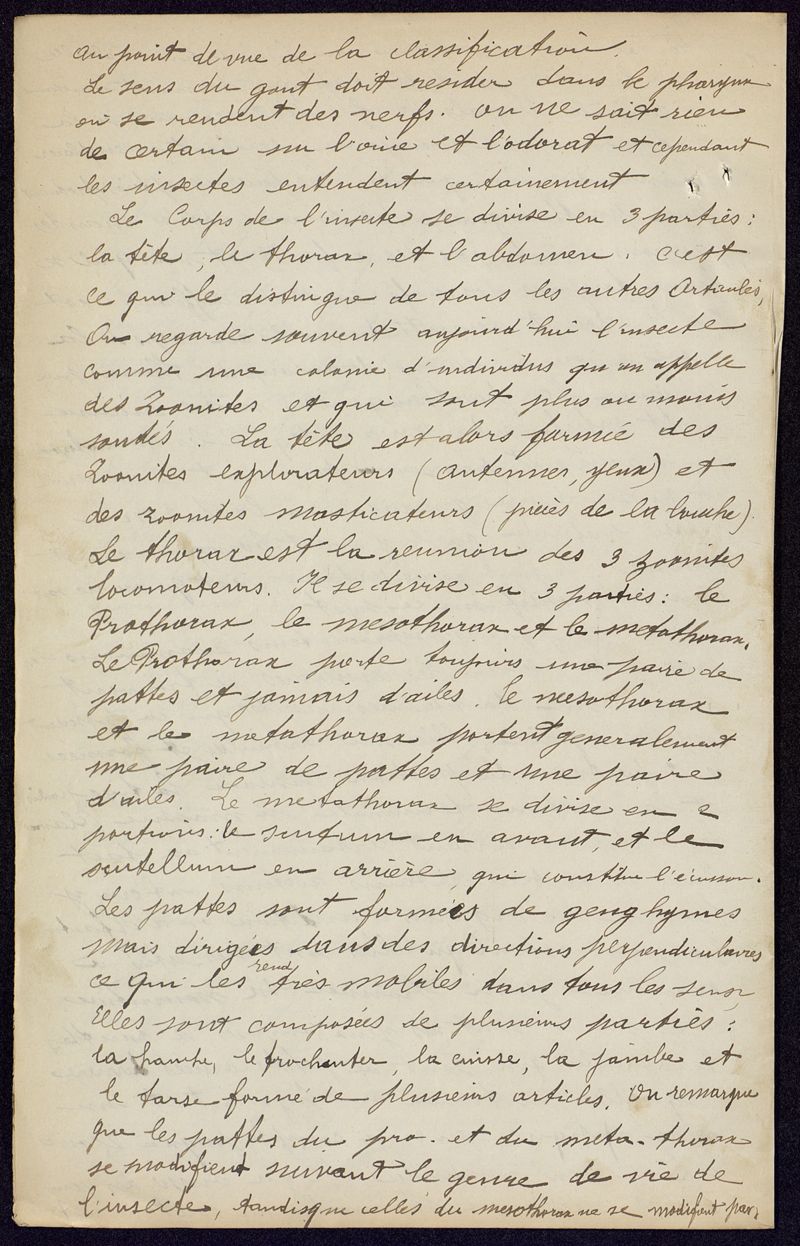 au point de vue de la classification.
Le sens du gout doit resider dans le pharynx
où se rendent des nerfs. On ne sait rien
de certain sur l'ouie et l'odorat et cependant
les insectes entendent certainement
Le Corps de l'insecte se divise en 3 parties :
la tête, le thorax, et l'abdomen. C'est
ce qui le distingue de tous les autres Articulés,
On regarde souvent aujourd'hui l'insecte
comme une colonie d'individus qu'on appelle
des Zoonites et qui sont plus ou moins
soudés. La tête est alors formée des
Zoonites explorateurs (antennes, yeux) et
des zoonites masticateurs (pièces de la bouche).
Le thorax est la reunion des 3 zoonites
locomoteurs. Il se divise en 3 parties : le
Prothorax, le mesothorax et le metathorax.
Le Prothorax porte toujours une paire de
pattes et jamais d'ailes. le mesothorax
et le metathorax portent generalement
une paire de pattes et une paire
d'ailes. Le metathorax se divise en 2
portions : le scutum en avant, et le
scutellum en arrière, qui constitue l'écusson.
Les pattes sont formées de
mais dirigées dans des directions perpendiculaires
ce qui les rend très mobiles dans tous les sens,
Elles sont composées de plusieurs parties :
la hanche, le trochanter, la cuisse, la jambe et
le tarse formé de plusieurs articles. On remarque
que les pattes du pro- et du meta-thorax
se modifient suivant le genre de vie de
l'insecte, tandisque celles du mesothorax ne se modifient pas.